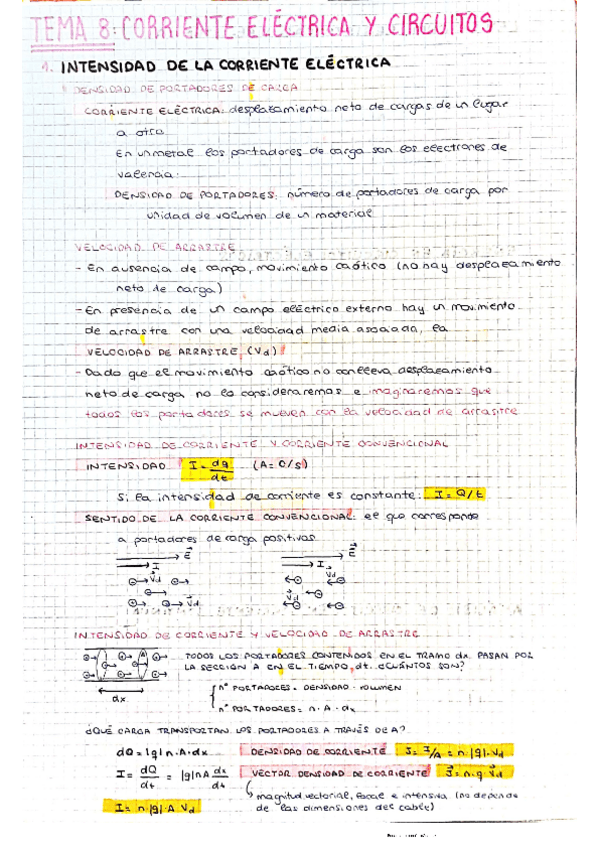 TEMA 8: CORRIENTE ELÉCTRICA Y CIRCUITOS
1. INTENSIDAD DE LA CORRIENTE ELÉCTRICA
DENSIDAD DE PORTADORES DE CARGA
CORRIENTE ELÉCTRICA: desplazamiento neto de cargas de un lugar
a otro
En un metal los portadores de carga son los electrones de
valencia.
DENSIDAD DE PORTADORES: número de portadores de carga por
unidad de volumen de un material
VELOCIDAD DE ARRASTRE
- En ausencia de campo, movimiento caótico (no hay desplazamiento
neto de carga)
- En presencia de un campo eléctrico externo hay un movimiento
de arrastre con una velocidad media asociada, la
VELOCIDAD DE ARRASTRE, (Vd)
- Dado que el movimiento caótico no conlleva desplazamiento
neto de carga no lo consideraremos e imaginaremos que
todos los portadores se mueven con la velocidad de arrastre
INTENSIDAD DE CORRIENTE Y CORRIENTE CONVENCIONAL
INTENSIDAD I = dq/dt (A = C/s)
Si la intensidad de corriente es constante: I = Q/t
SENTIDO DE LA CORRIENTE CONVENCIONAL: el que corresponde
a portadores de carga positivos
E⃗ E⃗
I I
V⃗d V⃗d
V⃗d
INTENSIDAD DE CORRIENTE Y VELOCIDAD DE ARRASTRE
TODOS LOS PORTADORES CONTENIDOS EN EL TRAMO dx PASAN POR
LA SECCIÓN A EN EL TIEMPO dt. ¿CUÁNTOS SON?
dx
nº PORTADORES = DENSIDAD · VOLUMEN
nº PORTADORES = n · A · dx
¿QUÉ CARGA TRANSPORTAN LOS PORTADORES A TRAVÉS DE A?
dQ = |q| n · A · dx DENSIDAD DE CORRIENTE J = I/A = n · |q| · Vd
I = dQ/dt = |q| n A dx/dt VECTOR DENSIDAD DE CORRIENTE J⃗ = n · q · V⃗d
magnitud vectorial, local e intensiva (no depende
I = n |q| A Vd de las dimensiones del cable)